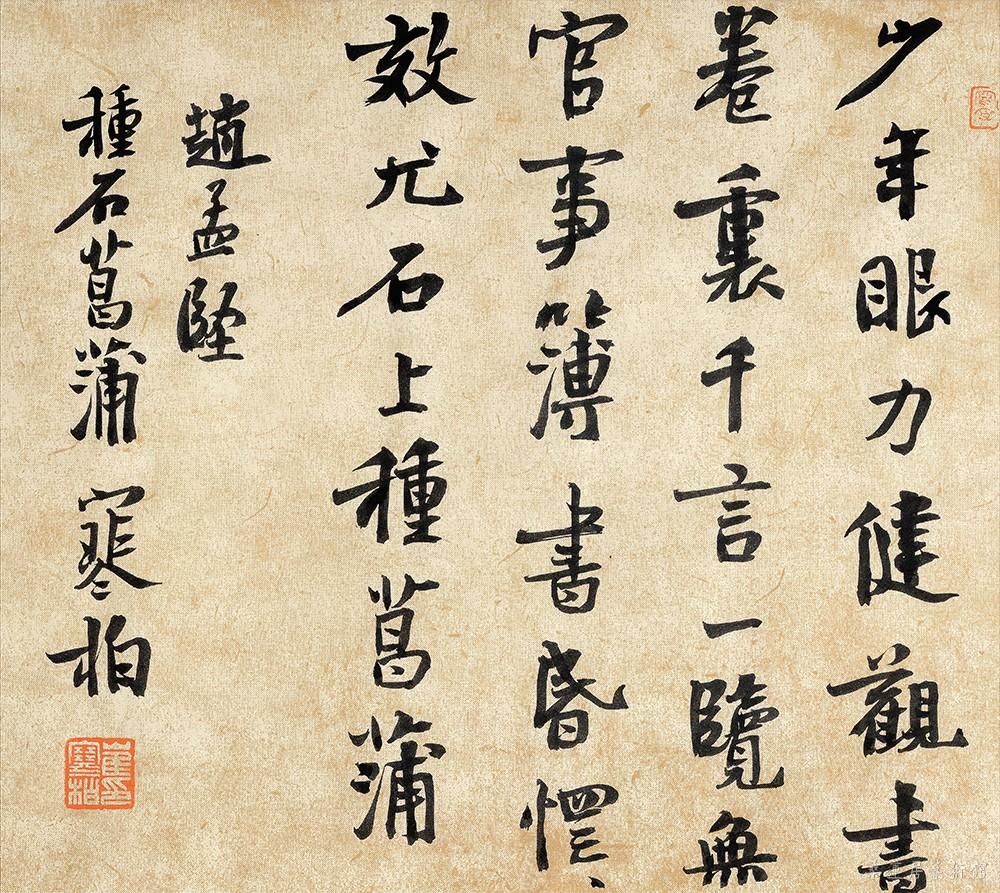 少年眼力健觀書
卷裏千言一覽無
官事簿書昏
效尤石上種菖蒲
趙孟堅
種石菖蒲 寒柏
崔印寒柏